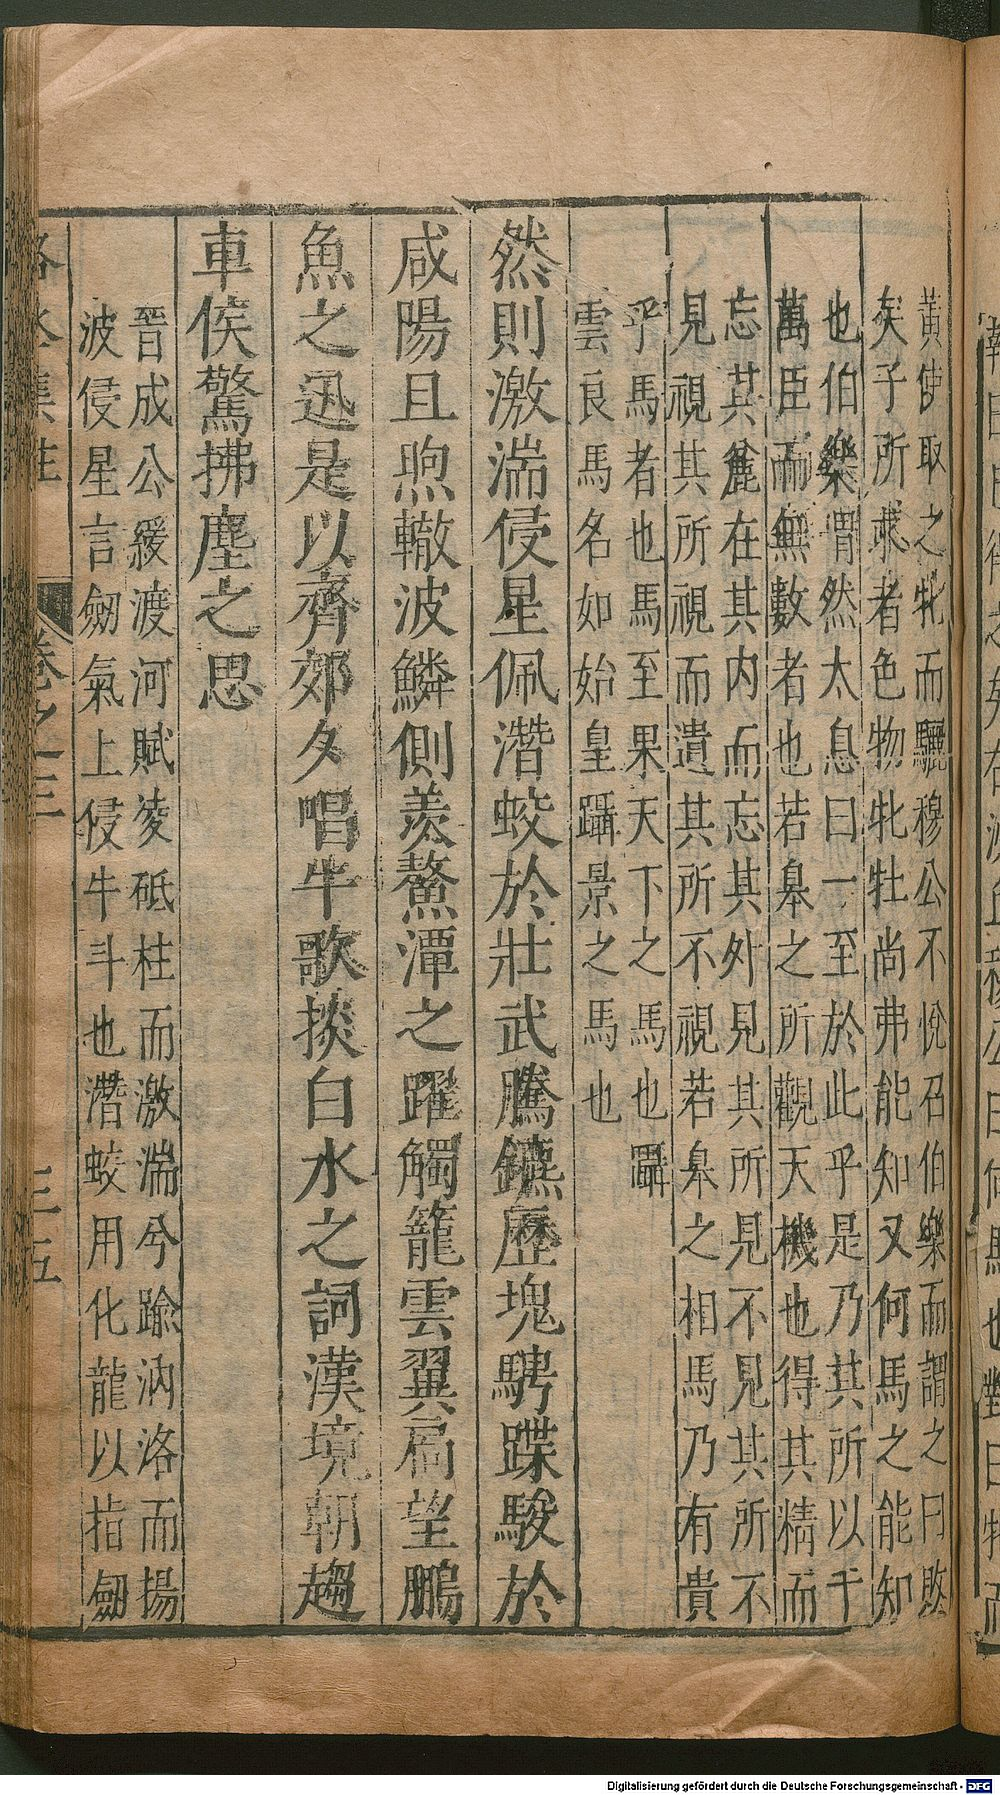 黃使取之牝而驪穆公不悅召伯樂而謂之曰敗
矣子所求者色物牝牡尚弗能知又何馬之能知
也伯樂喟然太息曰一至於此乎是乃其所以千
萬臣而無數者也若臯之所觀天機也得其精而
忘其麄在其内而忘其外見其所見不見其所不
見視其所視而遺其所不視若臯之相馬乃有貴
乎馬者也馬至果天下之馬也躡
雲良馬名如始皇躡景之馬也
然則激湍侵星佩潛蛟於壯武騰鑣歷塊騁蹀駿於
咸陽且喣轍波鱗側羨鰲潭之躍觸籠雲翼扃望鵬
魚之迅是以齊郊夕唱牛歌掞白水之詞漢境朝趨
車侯驚拂塵之思
晉成公緩渡河賦凌砥柱而激湍兮踰汭洛而揚
波侵星言劒氣上侵牛斗也潛蛟用化龍以指劒
卷之三 三五
Digitalisierung gefördert durch die Deutsche Forschungsgemeinschaft - DFG